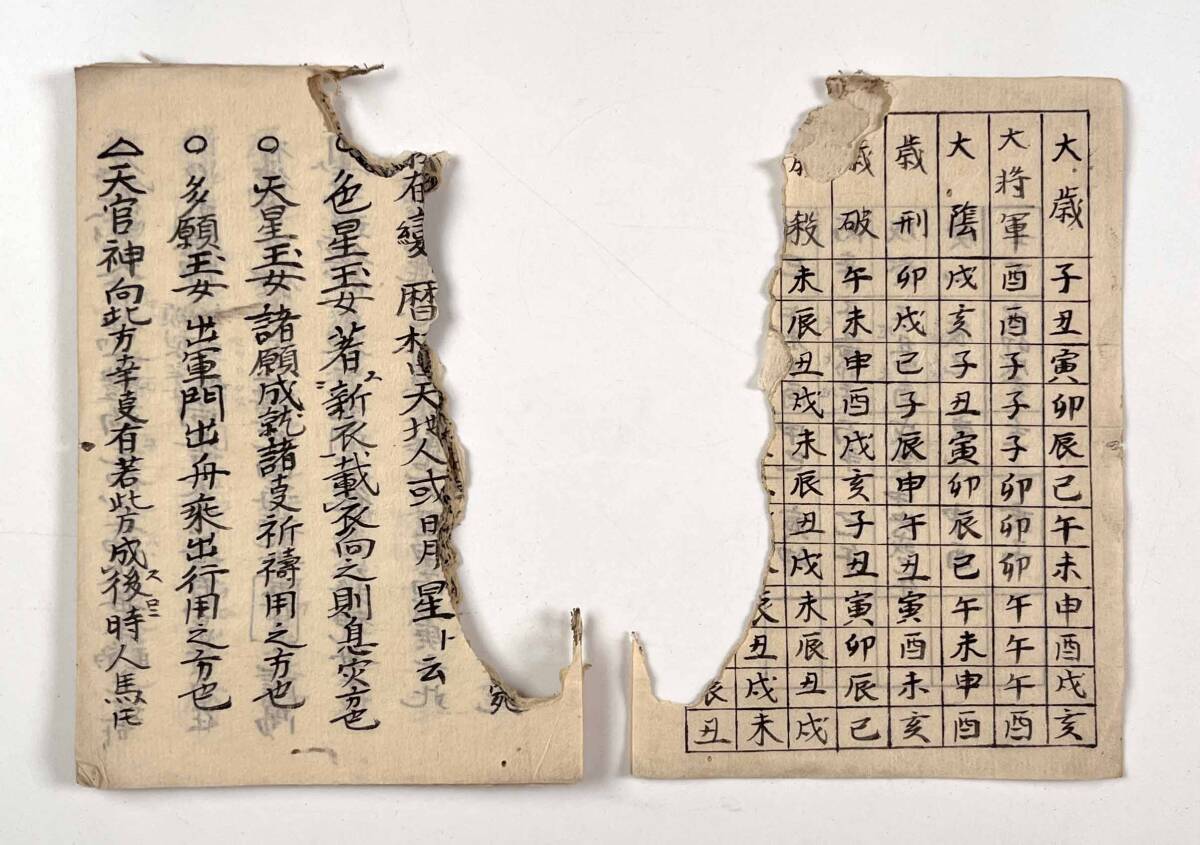 大歳子丑寅卯辰巳午未申酉戌亥
大将軍酉酉子子子卯卯卯午午午酉
大陰戌亥子丑寅卯辰巳午未申酉
歳刑卯戌巳子辰申午丑寅酉未亥
歳破午未申酉戌亥子丑寅卯辰巳
殺未辰丑戌未辰丑戌未辰丑戌
辰丑戌未
辰丑
宛
在変暦林天地人或日月星ト云
色星玉女著新衣載衣向之則息灾方也
○天星玉女諸願成就諸叓祈禱用之方也
○多願玉女出軍門出舟乘出行用之方也
△天官神向此方幸叓有若此方成後時人馬